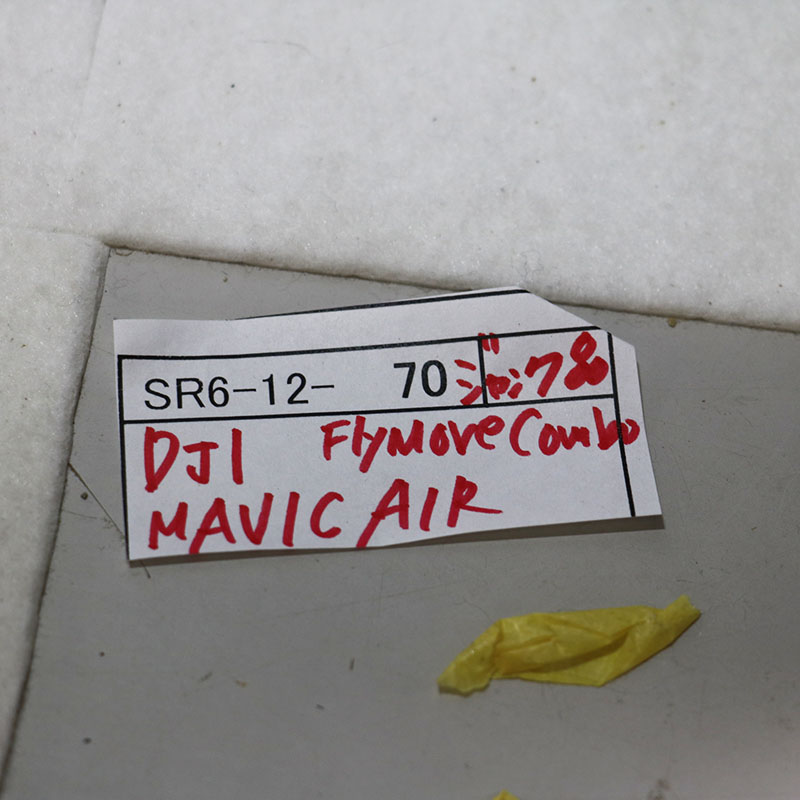 SR6-12- 70 ジャンク品
DJI FlyMoveCombo
MAVIC AIR